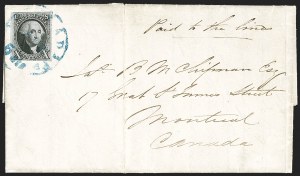 Paid to the lines
B. M. Chipman Esq
17 St James Street
Montreal
Canada